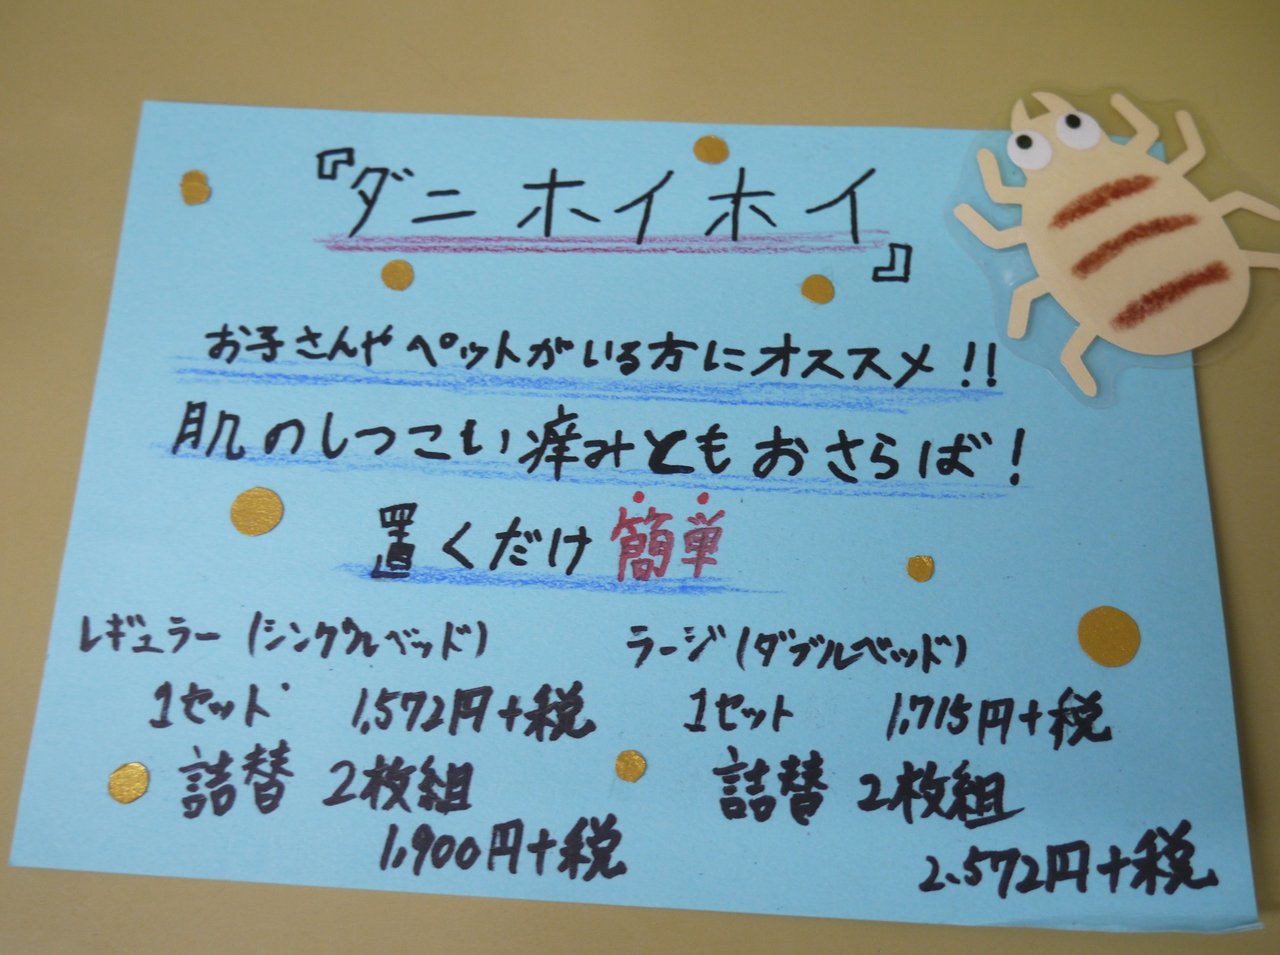 『ダニホイホイ』
お子さんやペットがいる方にオススメ!!
肌のしつこい痒みともおさらば!
置くだけ簡単
レギュラー(シングルベッド)
1セット 1,572円+税
詰替 2枚組
1,900円+税
ラージ(ダブルベッド)
1セット 1,715円+税
詰替 2枚組
2,572円+税